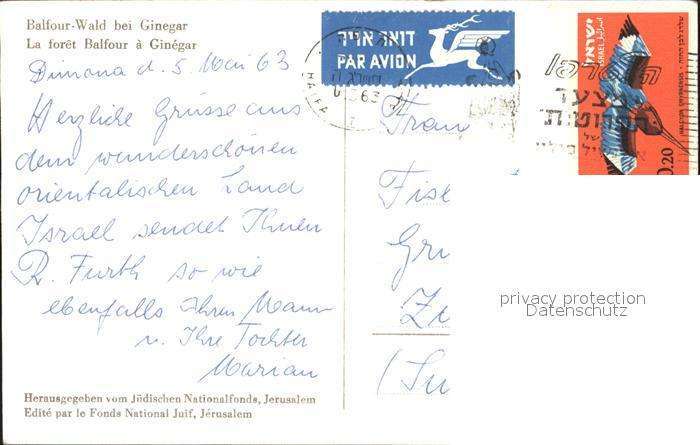 Balfour-Wald bei Ginegar
La forêt Balfour à Ginégar
Dimona d. 5 Mai 63
Herzliche Grüsse aus
dem wunderschönen
orientalischen Land
Israel sendet Ihnen
R. Furth so wie
ebenfalls Ihren Mann
u. Ihre Tochter
Marian
Herausgegeben vom Jüdischen Nationalfonds, Jerusalem
Edité par le Fonds National Juif, Jérusalem
דואר אויר
PAR AVION
HAIFA
63
ישראל
ISRAEL
HALCYON SMYRNENSIS
0.20
Frau
Fise
Gru
(Su
privacy protection
Datenschutz